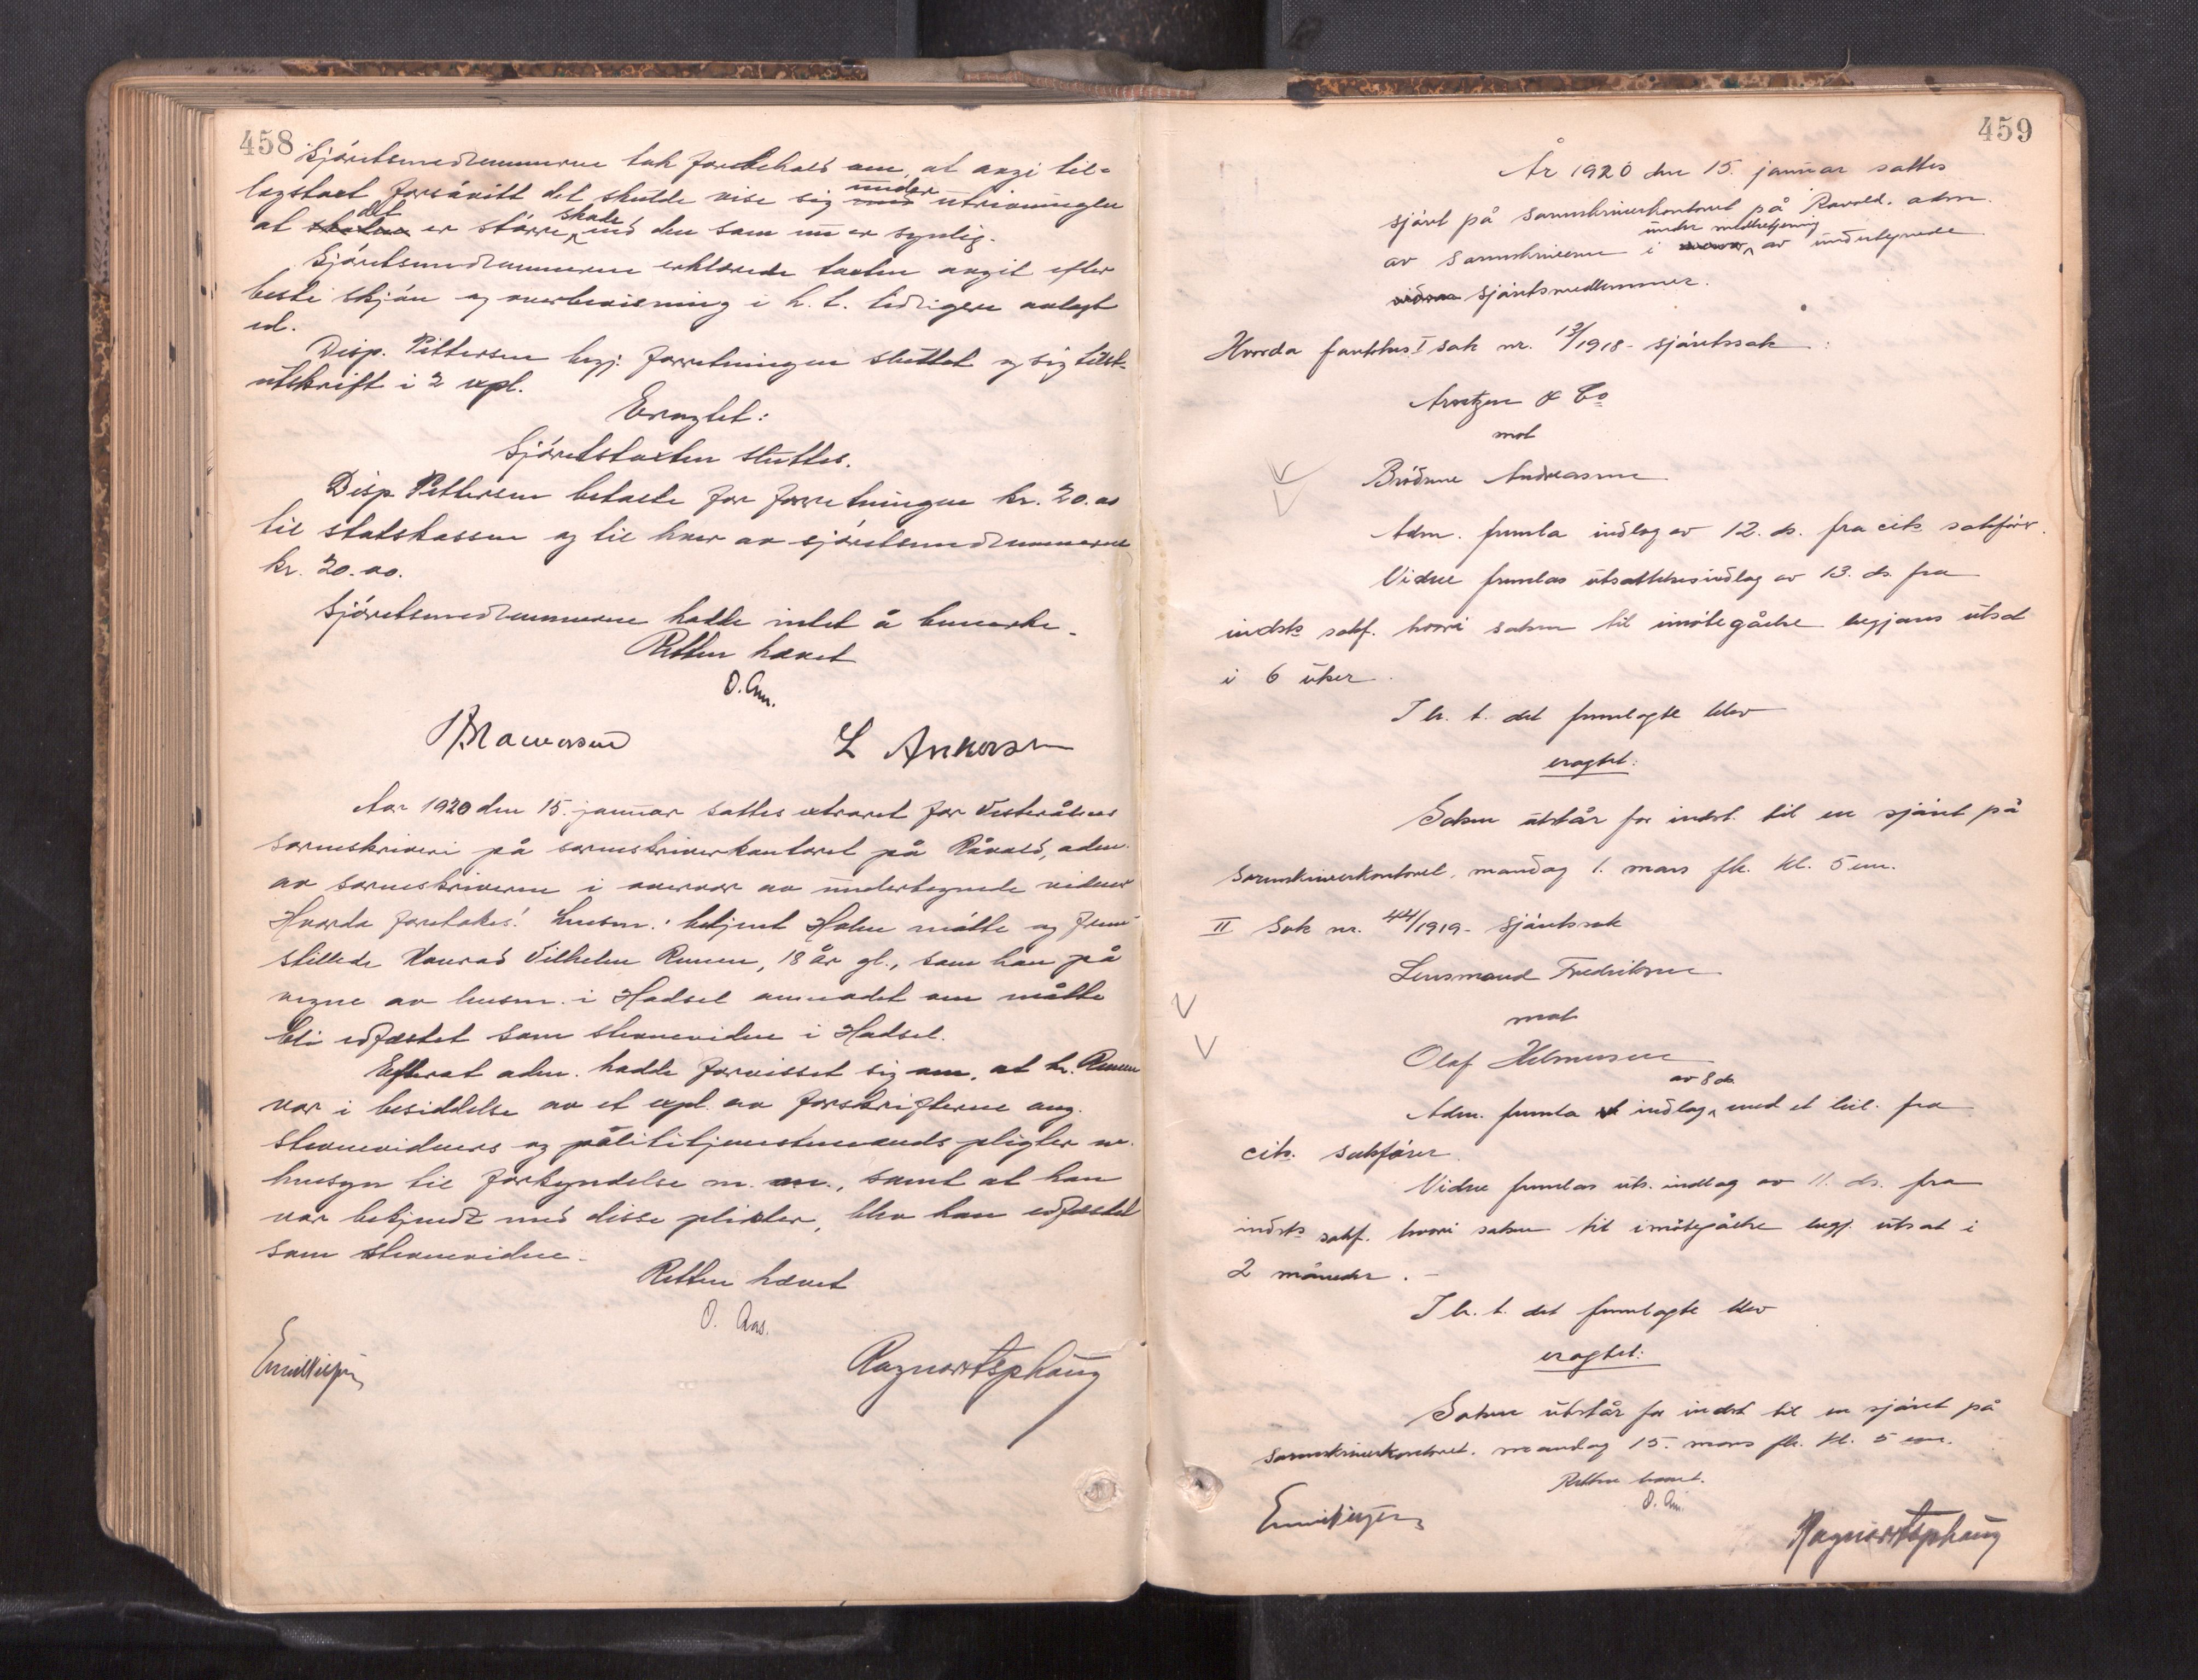 458
Sjöretsmedlemmerne tok forbehold om, at avgi til-
lægstaxt forsåvitt det skulde vise sig under utrivningen
at det er större skade end den som nu er synlig.
Sjöretsmedlemmerne erklærede taxten avgit efter
beste skjön og overbevisning i h. t. tidligere avlagt
ed.
Disp. Pettersen begj. forretningen sluttet og sig tilst.
utskrift i 2 expl.
Eragtet:
Sjöretstaxten sluttes.
Disp. Pettersen betalte for forretningen kr. 20.00
til statskassen og til hver av sjöretsmedlemmerne
kr. 20.00.
Sjöretsmedlemmerne hadde intet å bemerke.
Retten hævet
O. Aas.
L Ankersen
Aar 1920 den 15. januar sattes extraret for Vesterålens
sorenskriveri på sorenskriverkontoret på Råvold, adm.
av sorenskriveren i overvær av undertegnede vidner
Hvorda foretokes: Lensm. betjent Holm mötte og frem-
stillede Konrad Vilhelm 18 år gl., som han på
vegne av lensm. i Hadsel anmodet om måtte
bli edfæstet som stevnevidne i Hadsel.
Efterat adm. hadde forvisset sig om, at hr.
var i besiddelse av et expl. av forskrifterne ang.
stevnevidners og polititjenestemænds pligter m.
hensyn til forkyndelse m. m., samt at han
var bekjendt med disse plikter, blev han edfæstet
som stevnevidne.
Retten hævet
O. Aas.
459
År 1920 den 15. januar sattes
sjöret på sorenskriverkontoret på Ravold. adm.
av sorenskriveren i under medbetjening av undertegnede
sjöretsmedlemmer.
Hvorda foretokes: I Sak nr. 13/1918 - sjöretssak:
Arntzen & Co
mot
Brödrene Andreassen
Adm. fremla indlæg av 12. ds. fra citts sakförer.
Videre fremlas utsættelsesindlæg av 13. ds. fra
indsts sakf. hvori saken til imötegåelse begjæres utsat
i 6 uker.
I h. t. det fremlagte blev
eragtet:
Saken utstår for indst. til en sjöret på
sorenskriverkontoret, mandag 1. mars fk. kl. 5 em.
II Sak nr. 44/1919 - Sjöretssak
Lensmand Fredriksen
mot
Olaf Helmersen
Adm. fremla indlæg av 8 ds. med et bil. fra
cits. sakförer.
Videre fremlas uts. indlæg av 11. ds. fra
indsts sakf. hvori saken til imötegåelse begj. utsat i
2 måneder. -
I h. t. det fremlagte blev
eragtet:
Saken utstår for indst til en sjöret på
sorenskriverkontoret, mandag 15. mars fk. kl. 5 em.
Retten hævet.
O. Aas.